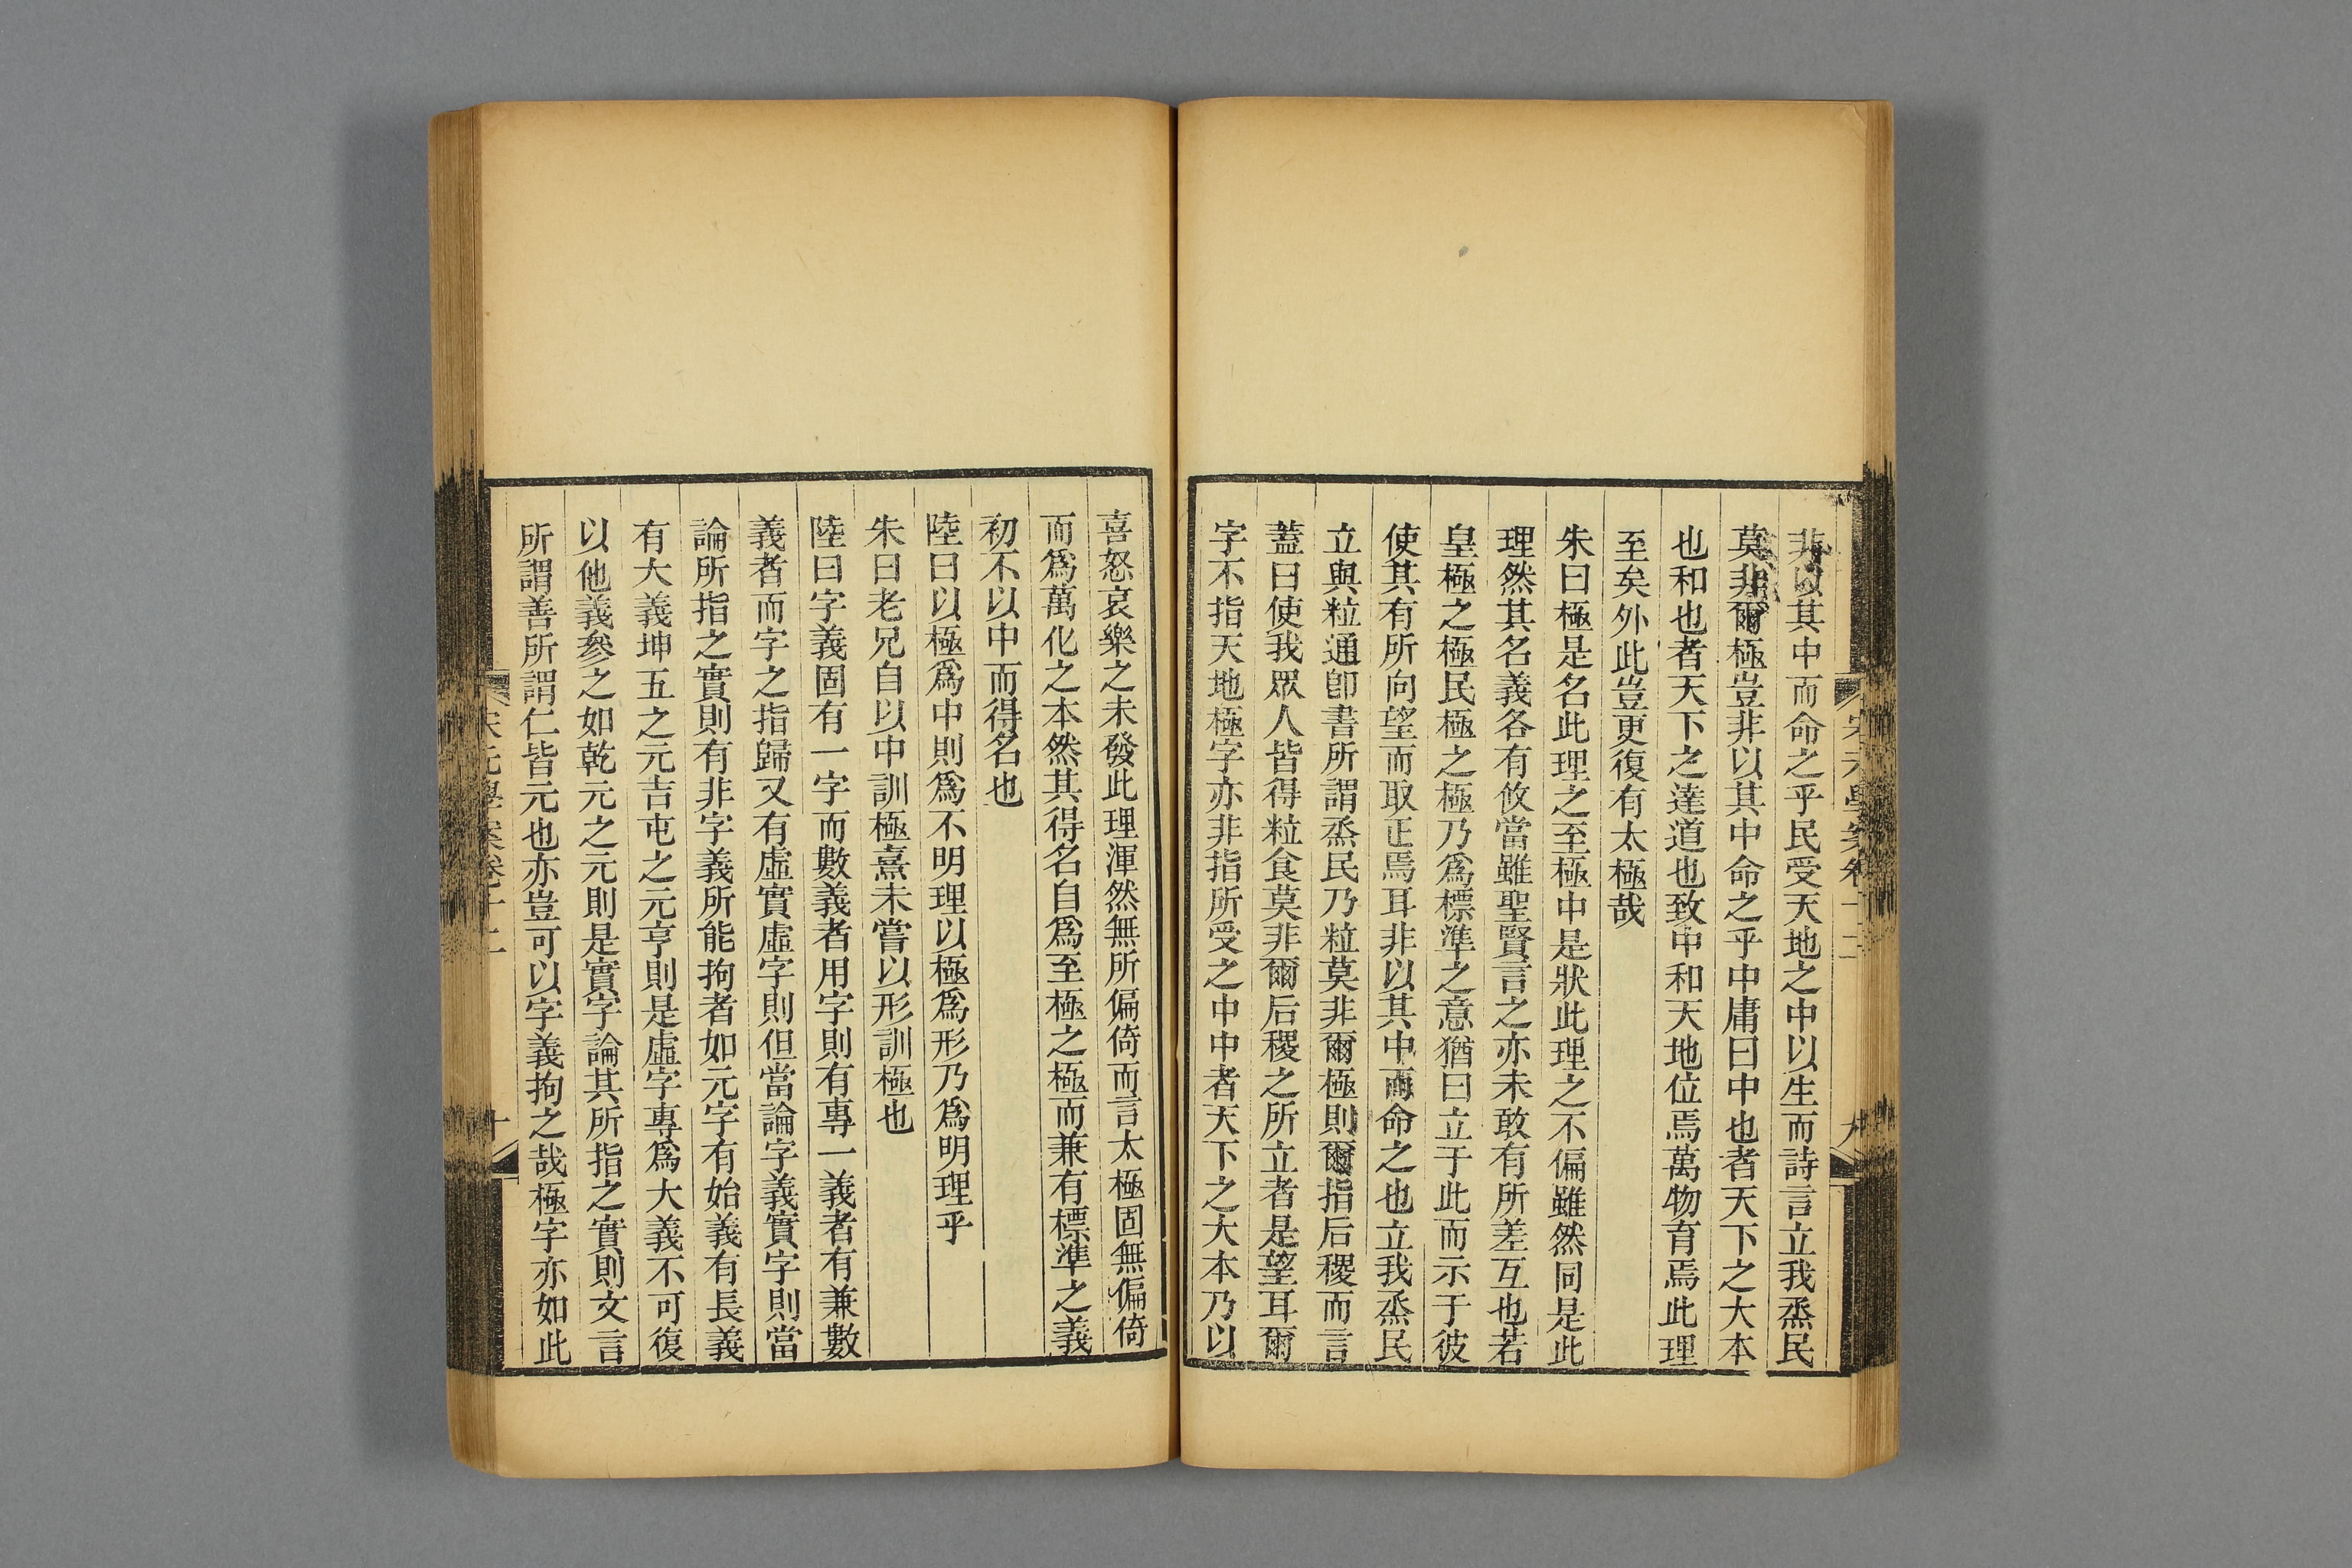 非以其中而命之乎民受天地之中以生而詩言立我烝民
莫非爾極豈非以其中命之乎中庸曰中也者天下之大本
也和也者天下之達道也致中和天地位焉萬物育焉此理
至矣外此豈更復有太極哉
朱曰極是名此理之至極中是狀此理之不偏雖然同是此
理然其名義各有攸當雖聖賢言之亦未敢有所差互也若
皇極之極民極之極乃爲標準之意猶曰立于此而示于彼
使其有所向望而取正焉耳非以其中而命之也立我烝民
立與粒通卽書所謂烝民乃粒莫非爾極則爾指后稷而言
蓋曰使我眾人皆得粒食莫非爾后稷之所立者是望耳爾
字不指天地極字亦非指所受之中中者天下之大本乃以
喜怒哀樂之未發此理渾然無所偏倚而言太極固無偏倚
而爲萬化之本然其得名自爲至極之極而兼有標準之義
初不以中而得名也
陸曰以極爲中則爲不明理以極爲形乃爲明理乎
朱曰老兄自以中訓極熹未嘗以形訓極也
陸曰字義固有一字而數義者用字則有專一義者有兼數
義者而字之指歸又有虛實虛字則但當論字義實字則當
論所指之實則有非字義所能拘者如元字有始義有長義
有大義坤五之元吉屯之元亨則是虛字專爲大義不可復
以他義參之如乾元之元則是實字論其所指之實則文言
所謂善所謂仁皆元也亦豈可以字義拘之哉極字亦如此
宋元學案卷十二
十